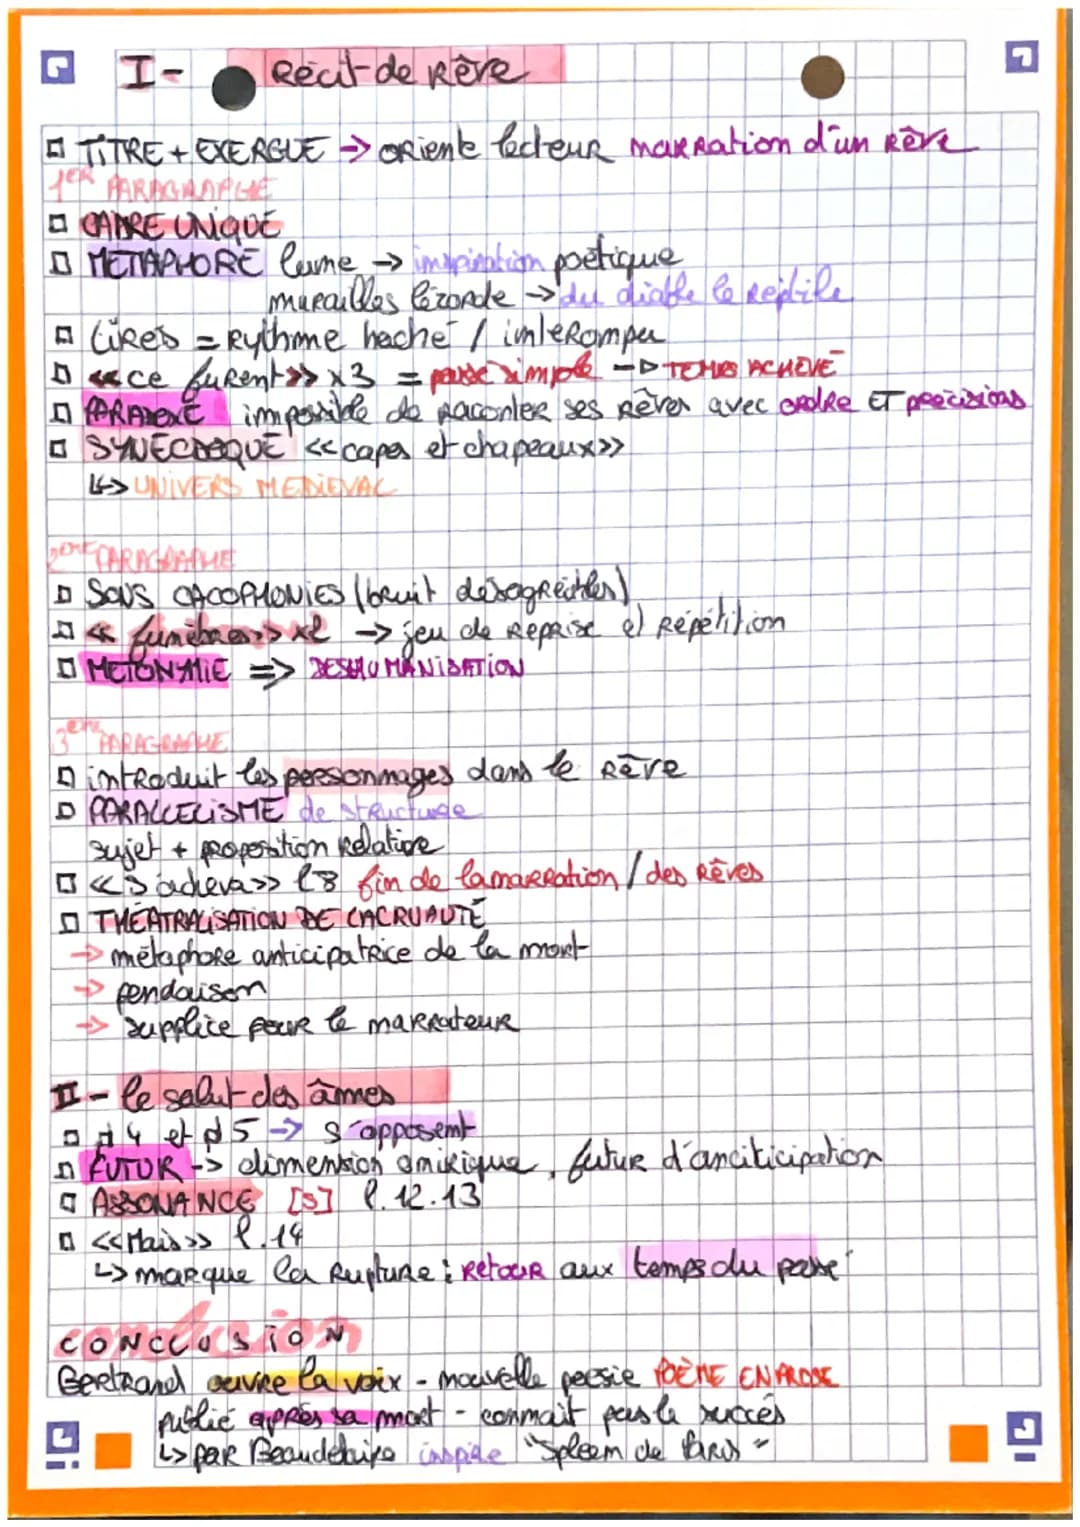 I- Récit de Rêve
TITRE + EXERGUE → oriente lecteur narration d'un rêve
1ER PARAGRAPHE
CADRE UNIQUE
METAPHORE lune → inspiration poétique
murailles lézardé → du diable le reptile
tirets = Rythme haché / interrompu
<<ce furent>> x3 = passé simple → TEMPS ACHEVÉ
PARADOXE impossible de raconter ses rêves avec ordre ET précisions
SYNECDOQUE <<capes et chapeaux>>
↳> UNIVERS MEDIEVAL
2ème PARAGRAPHE
SONS CACOPHONIES (bruit désagréables)
<<funèbres>> x2 → jeu de reprise et répétition
METONYMIE => DESHUMANISATION
3ème PARAGRAPHE
introduit les personnages dans le rêve
PARALLELISME de structure
sujet + proposition relative
<<s'acheva>> l8 fin de la narration / des rêves
THÉATRALISATION DE LA CRUAUTÉ
→ métaphore anticipatrice de la mort
→ pendaison
→ supplice pour le narrateur
II- le salut des âmes
4 et 5 → s'opposent
FUTUR -> dimension onirique, futur d'anciticipation
ASSONANCE [s] l.12.13
<<Mais>> l.14
↳ marque la rupture : retour aux temps du passé
CONCLUSION
Bertrand ouvre la voix - nouvelle poesie POÈME EN PROSE
publié après sa mort - connait pas le succès
↳ par Beaudelaire inspire "Spleen de Paris"